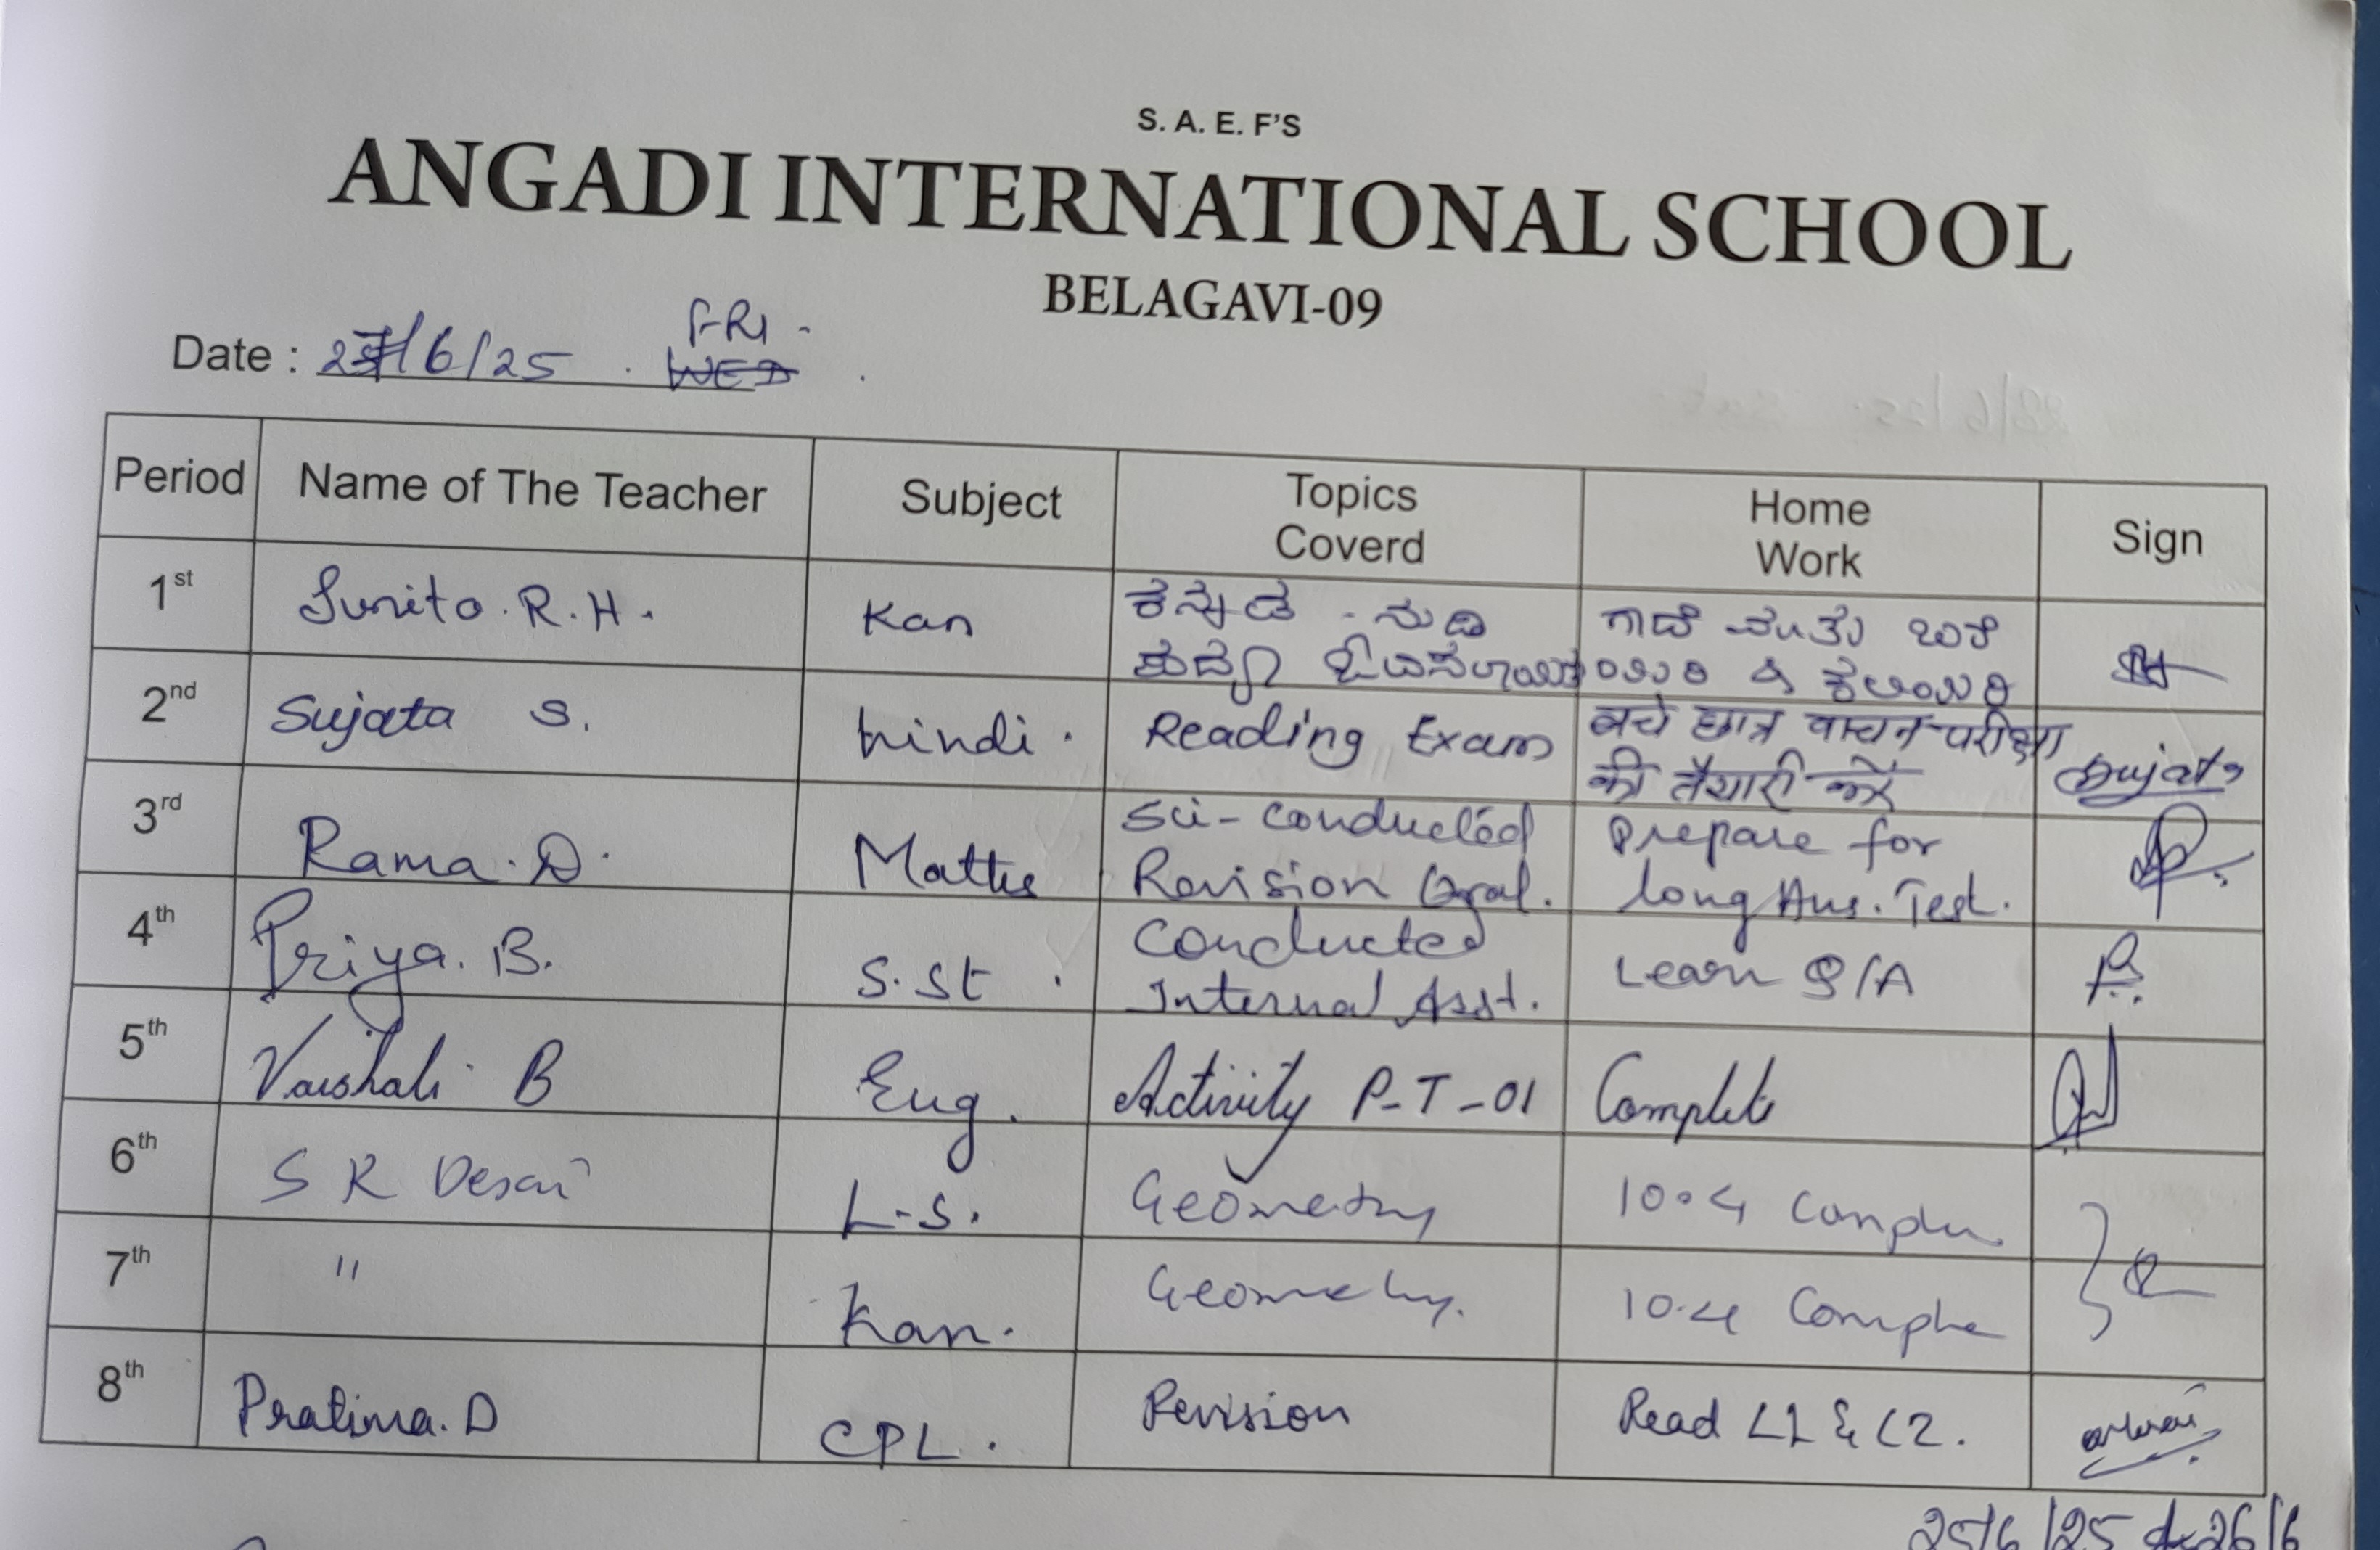 S. A. E. F'S
ANGADI INTERNATIONAL SCHOOL
BELAGAVI-09
Date : 27/6/25 FRI
WED
Period Name of The Teacher Subject Topics Coverd Home Work Sign
1st Sunita.R.H. Kan ಕನ್ನಡ - ನುಡಿ ಗಾದೆ ಮತ್ತು
2nd Sujata S. hindi. Reading Exam बचे छात्र वाचन परीक्षा
की तैयारी करें Sujata
3rd Rama.D. Maths Sci- conducted Prepare for
Revision Oral. long Ans. Test.
4th Priya.B. S.St. Conducted Learn Q/A
Internal Asst.
5th Vaishali B Eng. Activity P-T-01 Complete
6th S R Desai L.S. Geometry 10.4
7th " Kan. Geometry. 10.4
8th Pratima.D CPL. Revision Read L1 & L2.
25/6/25 & 26/6